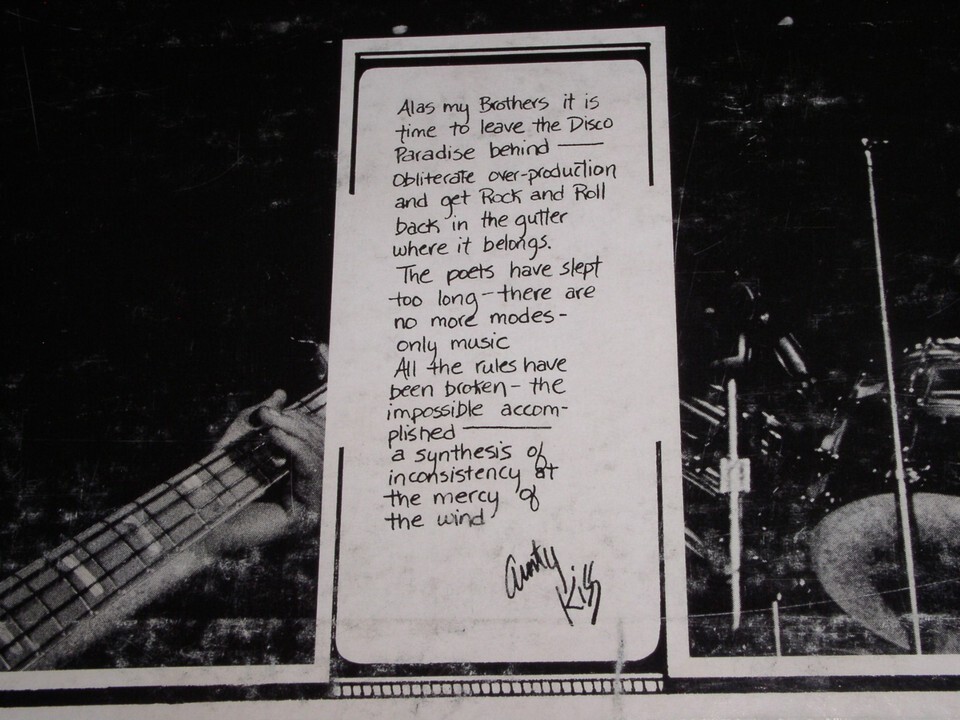 Alas my Brothers it is
time to leave the Disco
Paradise behind —
Obliterate over-production
and get Rock and Roll
back in the gutter
where it belongs.
The poets have slept
too long - there are
no more modes -
only music
All the rules have
been broken - the
impossible accom-
plished —
a synthesis of
inconsistency at
the mercy of
the wind
Aunty
Kiss